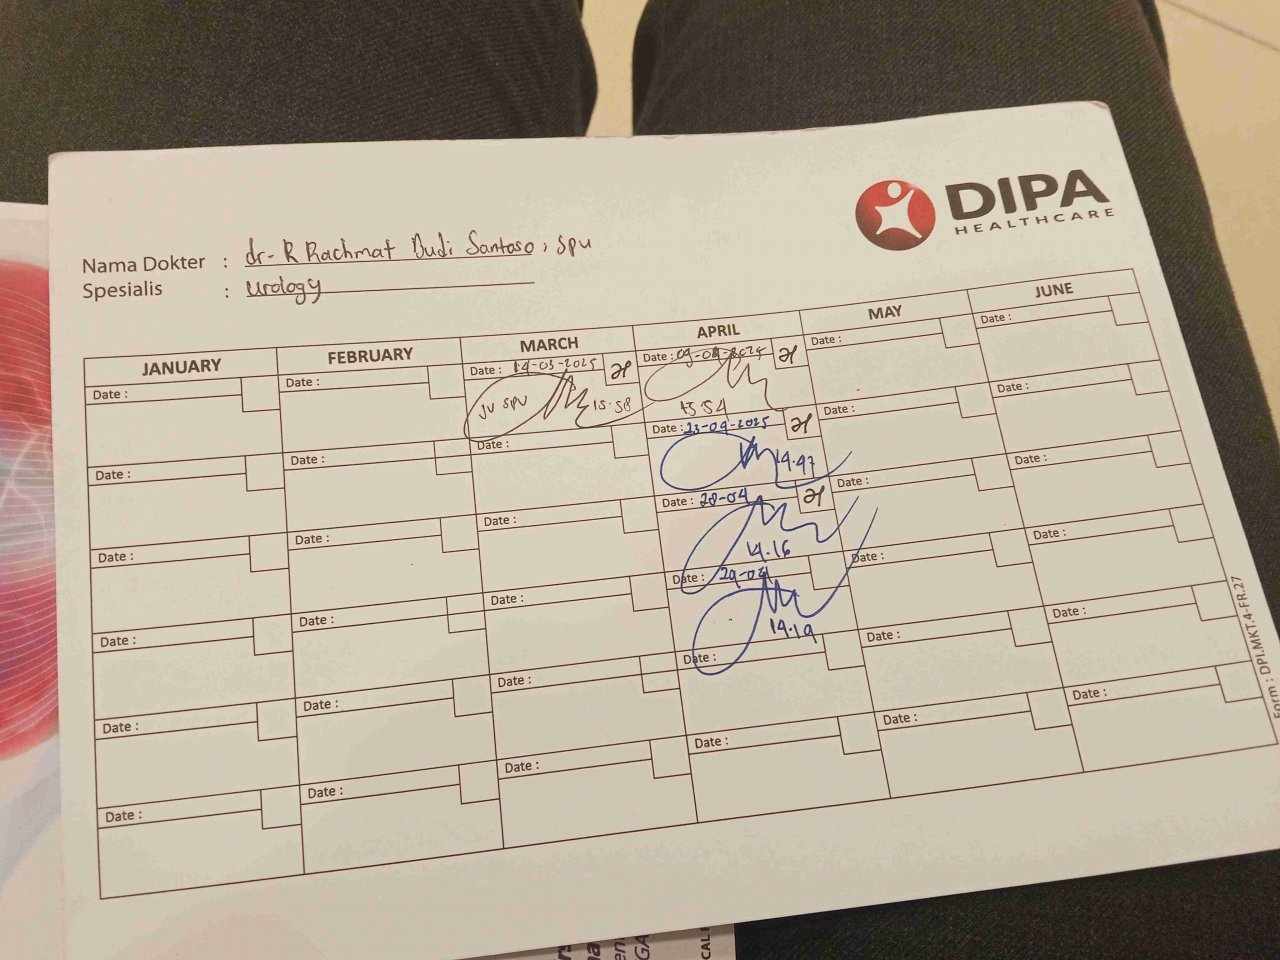 DIPA
HEALTHCARE
Nama Dokter : dr- R Rachmat Budi Santoso, SpU
Spesialis : Urology
JANUARY FEBRUARY MARCH APRIL MAY JUNE
Date : Date : Date : 14-03-2025 Date : 09-04-2025 Date : Date :
JV SPU 15.58 15.54
Date : Date : Date : Date : 23-04-2025 Date : Date :
14.47
Date : Date : Date : Date : 28-04 Date : Date :
14.16
Date : Date : Date : Date : 29-04 Date : Date :
14.19
Date : Date : Date : Date : Date : Date :
Date : Date : Date : Date : Date : Date :
Form : DPI.MKT.4-FR.27